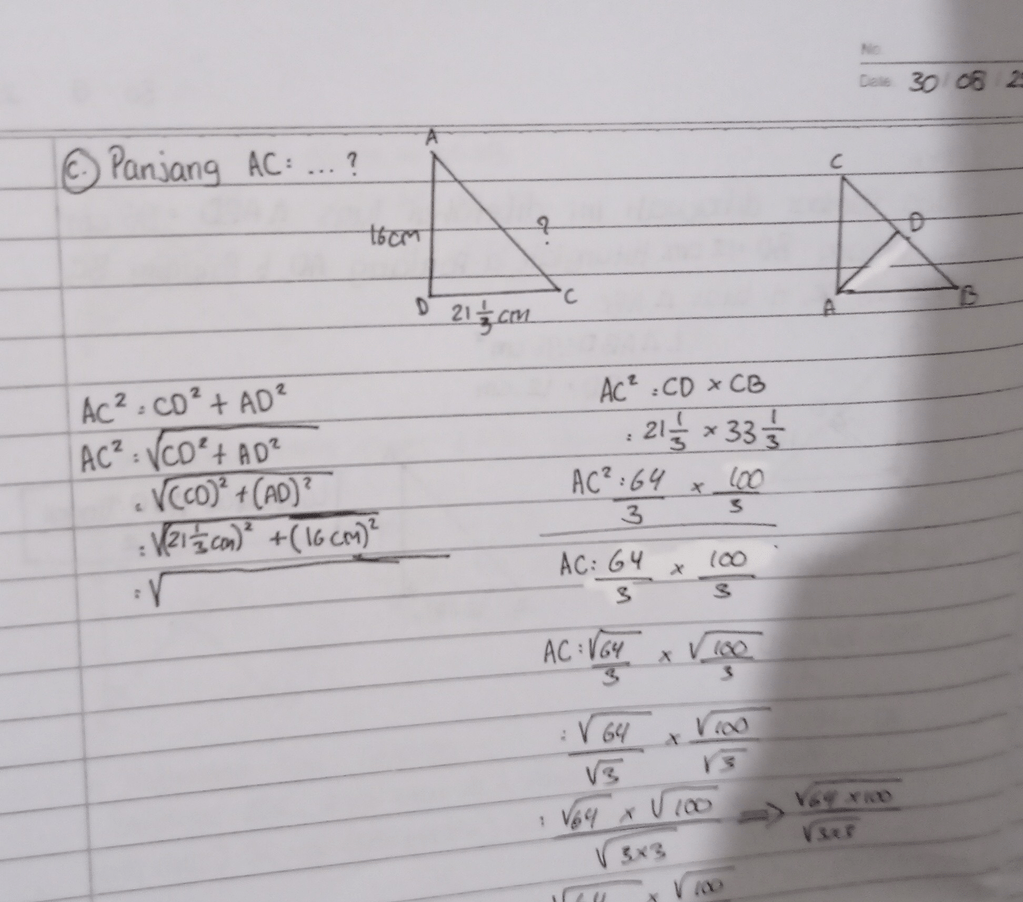 No.
Date. 30/08/2
C. Panjang AC: ... ?
A
16cm
?
D
21 1/3 cm
C
C
D
A
B
AC² : CD² + AD²
AC² : √CD² + AD²
: √(CD)² + (AD)²
: √(21 1/3 cm)² + (16 cm)²
: √
AC² : CD × CB
: 21 1/3 × 33 1/3
AC² : 64/3 × 100/3
AC : 64/3 × 100/3
AC : √64/3 × √100/3
: √64/√3 × √100/√3
: √64 × √100/√3×3 ⇒ √64×100/√3×3
× √100